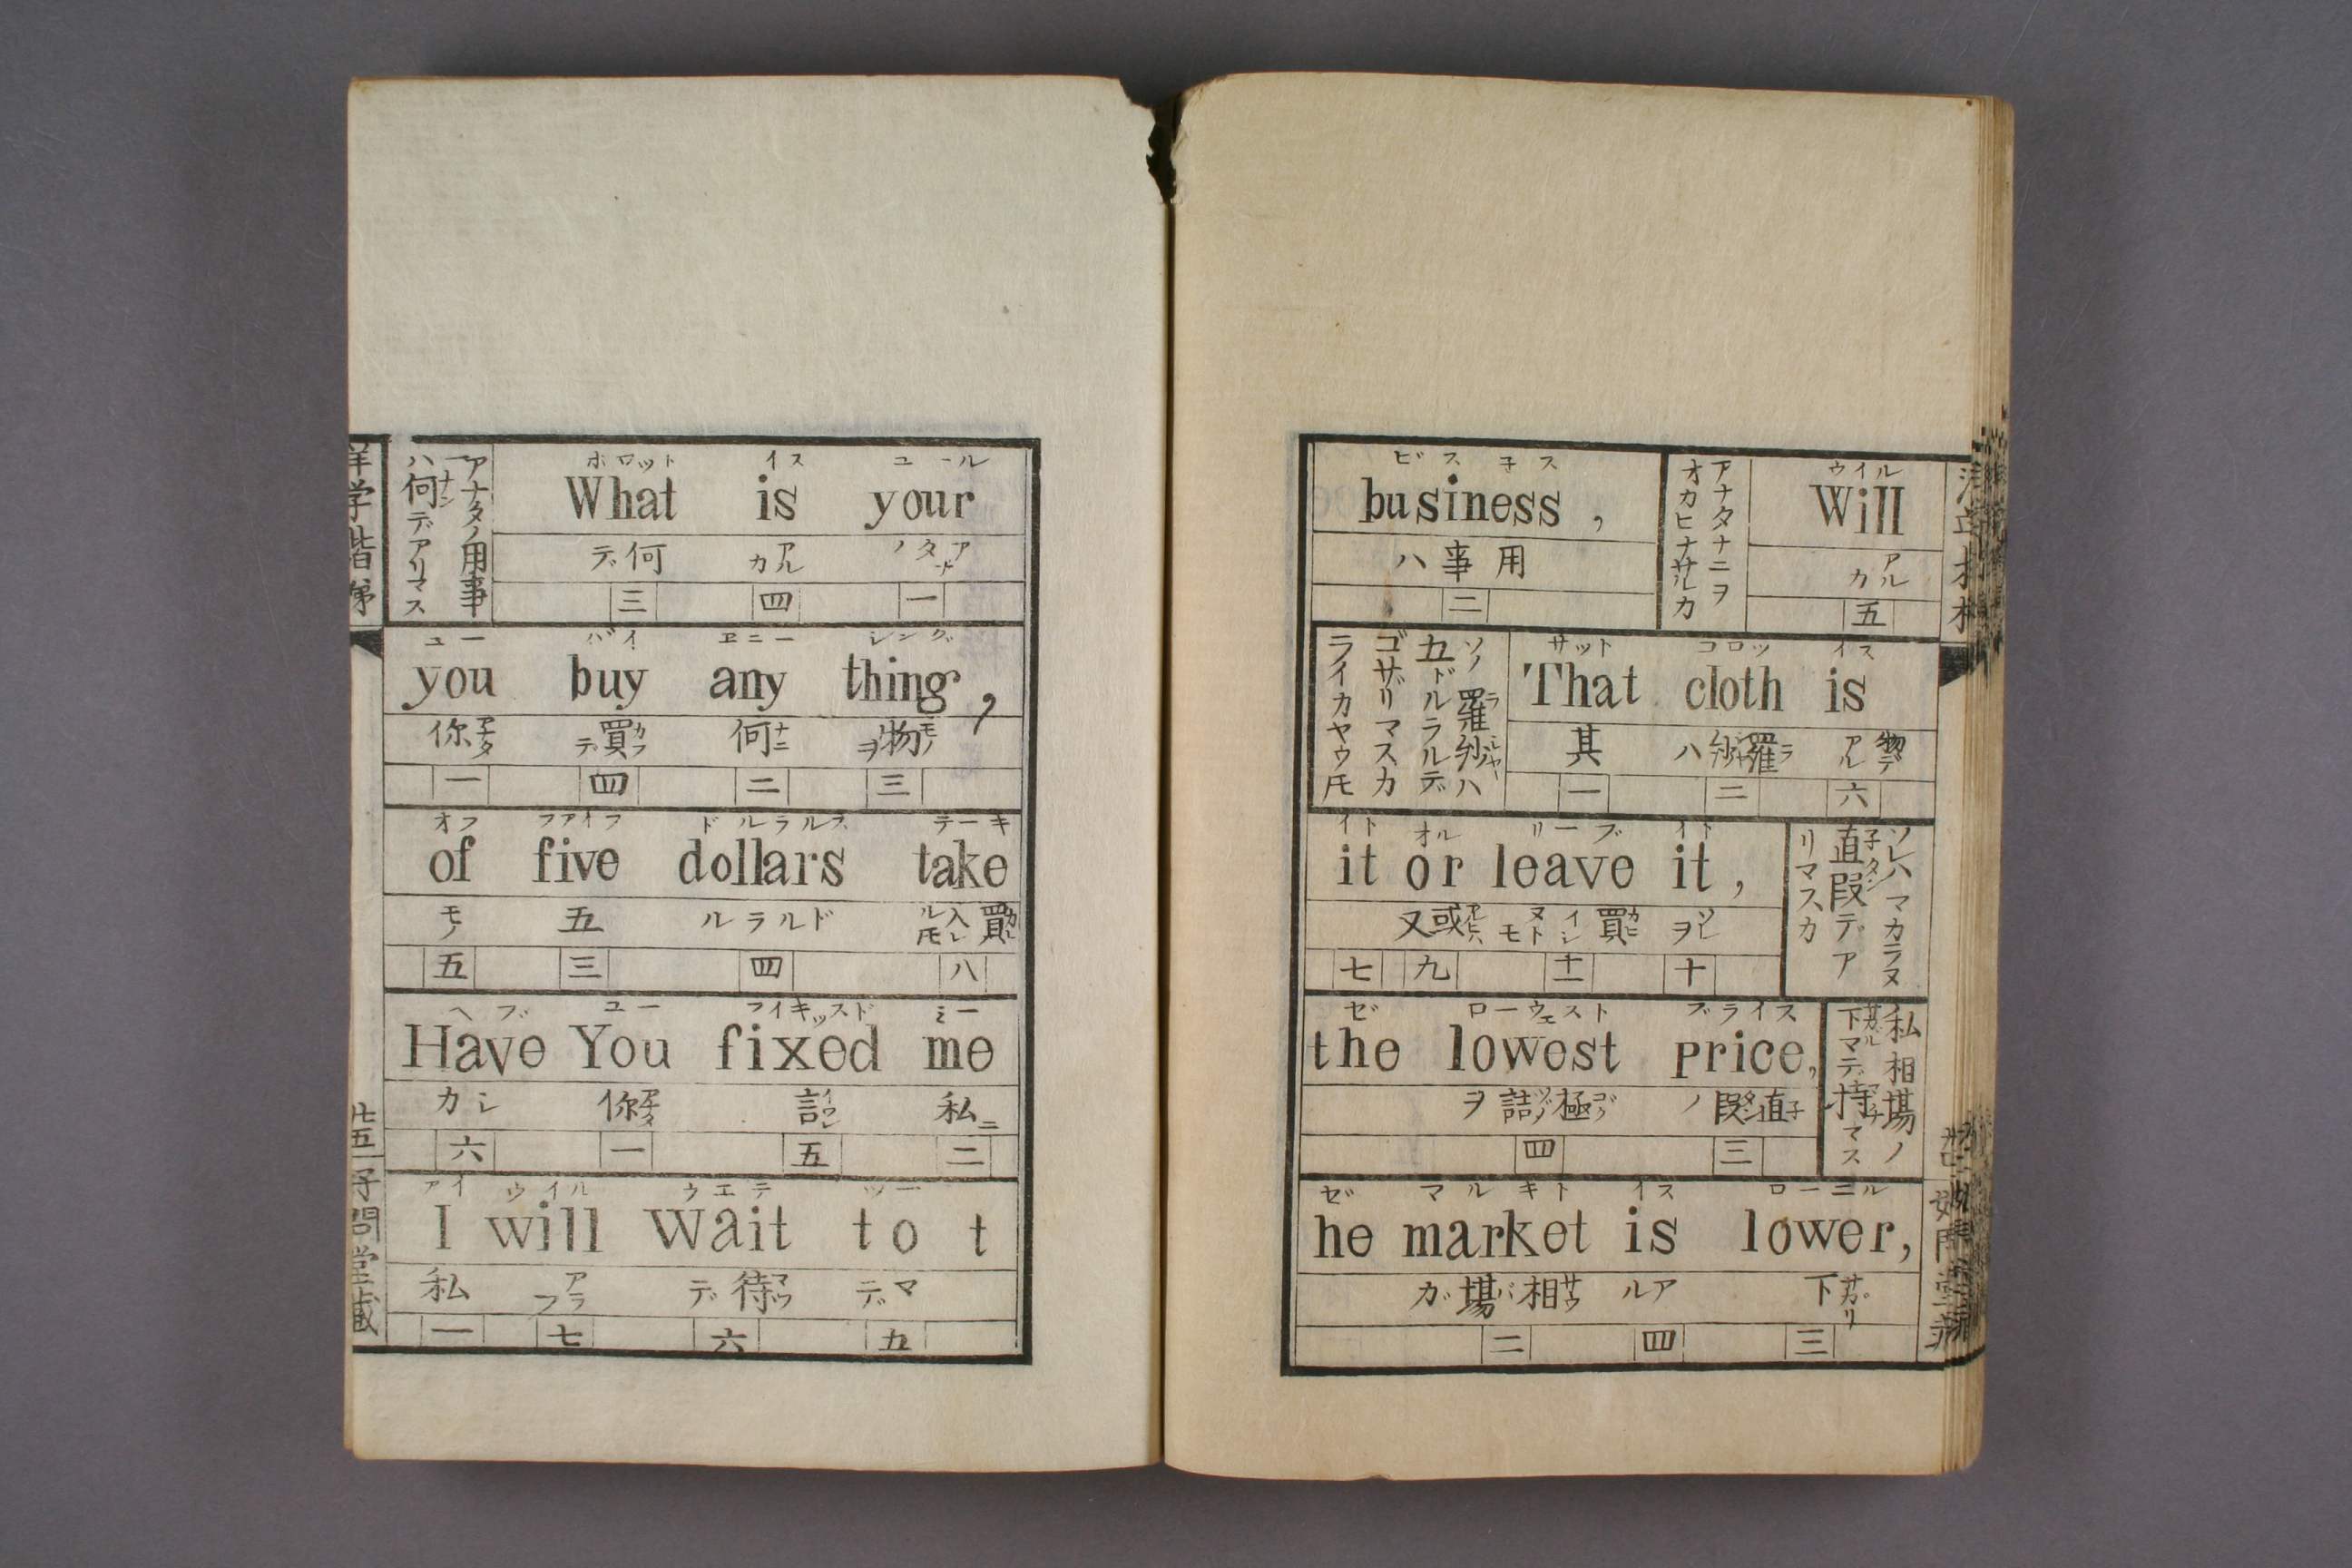 洋学階梯
アナタノ用事
ハ何デアリマス
ナン
ホロット イス ユール
What is your
デ何 アルカ アナタノ
三 四 一
ビス子ス
business,
ハ事用
二
アナタナニヲ
オカヒナサルカ
ウイル
Will
アルカ
五
ユー バイ エニー シング
you buy any thing,
你アナタ 買カフテ 何ナニ 物モノヲ
一 四 二 三
ソノ羅紗ハ
ラシャー
五ドルラルデ
ゴザリマスカ
ライカヤウ𪜈
サット コロッ イス
That cloth is
其 ハ紗羅 物デアル
一 二 六
オフ ファイフ ドルラルス テーキ
of five dollars take
モノ 五 ルラルド 買カヒ入レル𪜈
五 三 四 八
イト オル リーブ イト
it or leave it,
又或アルヒハ 買カヒインヌトモ ソレヲ
七 九 十一 十
ソレハマカラヌ
直段デア
子タン
リマスカ
ヘブ ユー フイキッスド ミー
Have You fixed me
カシ 你アナタ 言 私ニ
六 一 五 二
ゼ ローウェスト プライス
the lowest price,
ヲ詰極 ノ段直
四 三
私相場ノ
下マデ待マス
アイ ウイル ウエテ ツー
I will wait to t
私 アラフ デ待マツ デマ
一 七 六 五
ゼ マルキト イス ローニル
he market is lower,
ガ場相 ルア 下サガリ
二 四 三
廿五 子問堂蔵